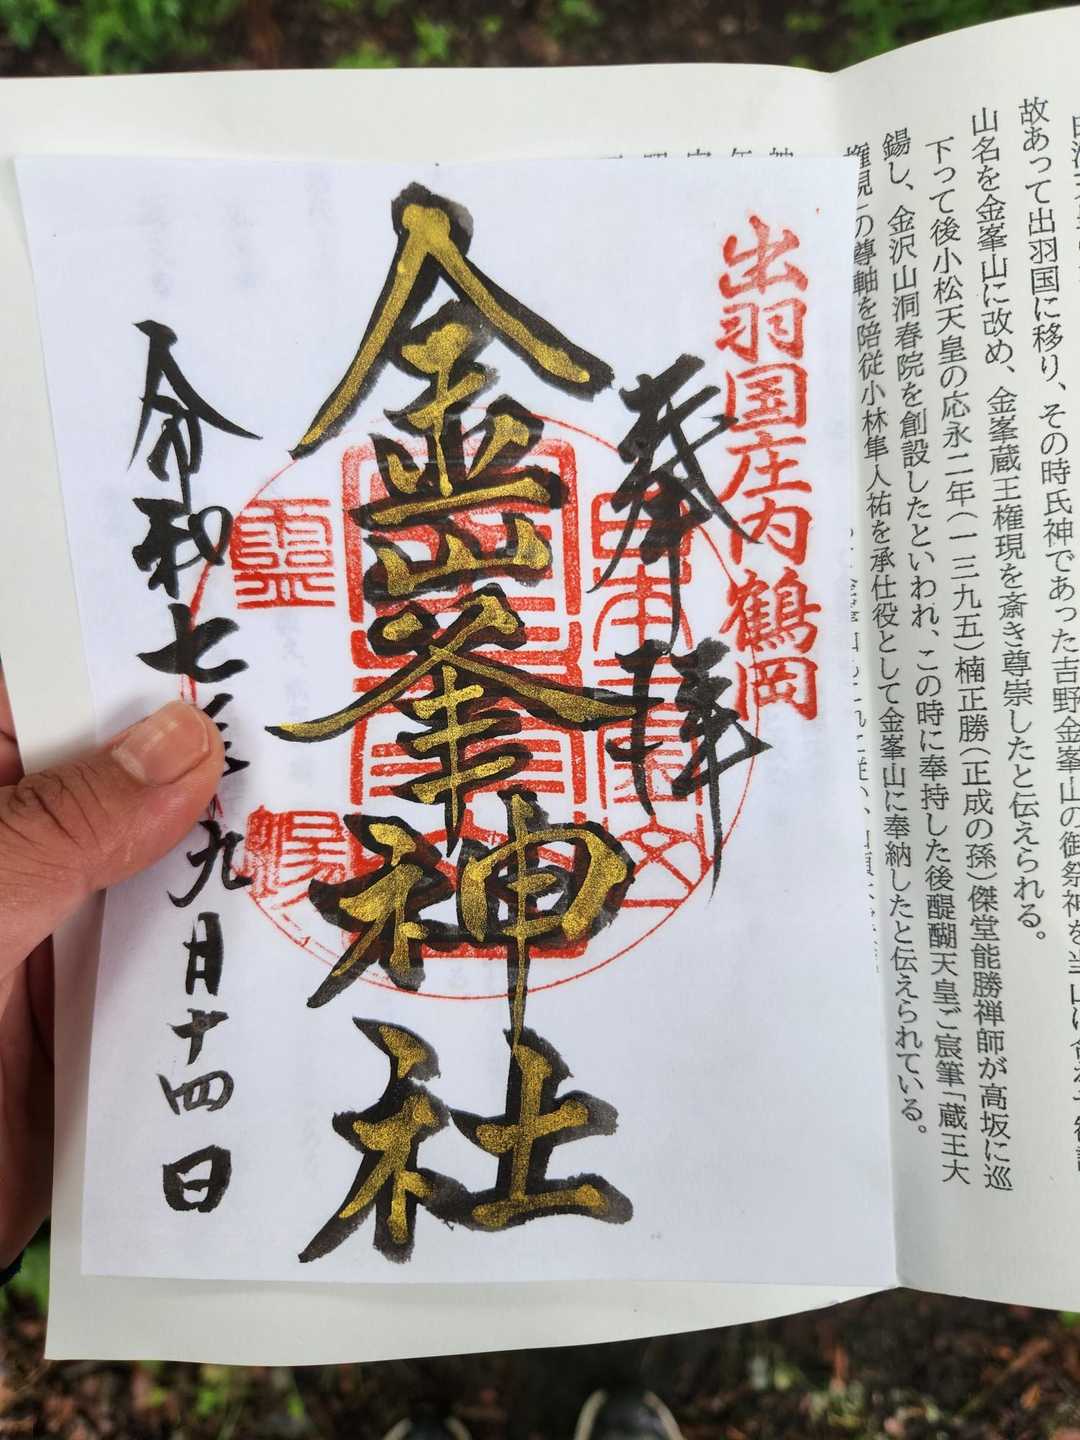 故あって出羽国に移り、その時氏神であった吉野金峯山の御祭神を当山に
山名を金峯山に改め、金峯蔵王権現を斎き尊崇したと伝えられる。
下って後小松天皇の応永二年(一三九五)楠正勝(正成の孫)傑堂能勝禅師が高坂に巡
錫し、金沢山洞春院を創設したといわれ、この時に奉持した後醍醐天皇ご宸筆「蔵王大
権現」の尊軸を陪従小林隼人祐を承仕役として金峯山に奉納したと伝えられている。
出羽国庄内鶴岡
奉拝
金峯神社
令和七年九月十四日